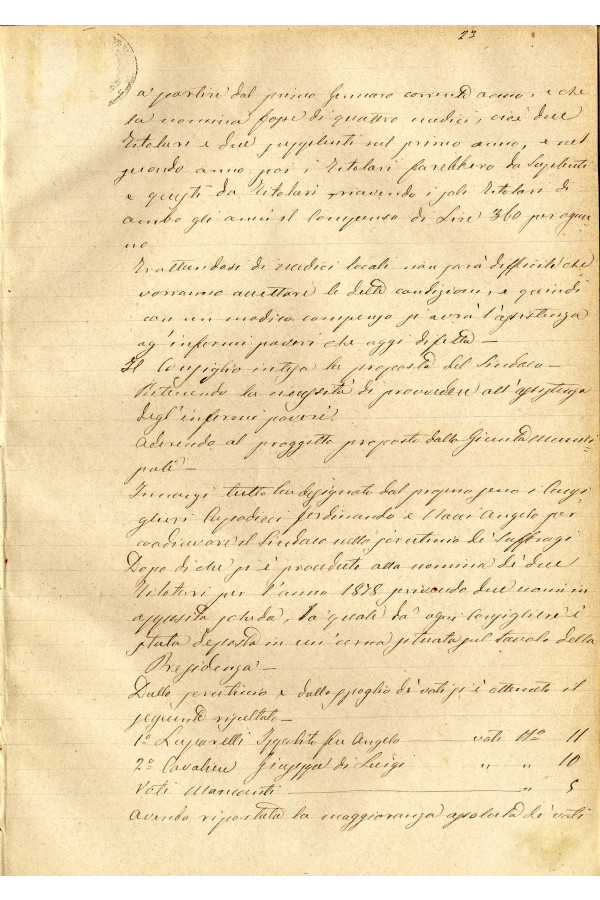 23
a partire dal primo Gennaro corrente anno, e che
la nomina fosse di quattro medici, cioè due
titolari e due supplenti nel primo anno, e nel
secondo anno poi i titolari sarebbero da Suplenti
e questi da titolari ricevendo i soli titolari di
ambo gli anni il compenso di Lire 360 per ognu-
no
Trattandosi di medici locali non sarà difficile che
vorranno accettare le dette condizioni, e quindi
con un modico compenso si avrà l'assistenza
ag' infermi poveri che oggi difetta —
Il Consiglio intesa la proposta del Sindaco —
Ritenendo la necessità di provvedere all'assistenza
degl' infermi poveri
Aderendo al proggetto proposto dalla Giunta Munici-
pale —
Innanzi tutto ha designato dal proprio seno i Consi
glieri Ferdinando e Angelo per
coadiuvare il Sindaco nello scrutinio de' Suffragi
Dopo di che si è proceduto alla nomina di due
titolari per l'anno 1878 scrivendo due nomi in
apposita scheda, la quale da ogni Consigliere è
stata deposta in un' urna situata sul tavolo della
Presidenza —
Dallo scrutinio e dallo spoglio di voti si è ottenuto il
seguente risultato —
1º Ippolito fu Angelo — voti Nº 11
2º Cavaliere Giuseppe di Luigi " " 10
Voti Mancanti — " 5
Avendo riportata la maggioranza assoluta di voti